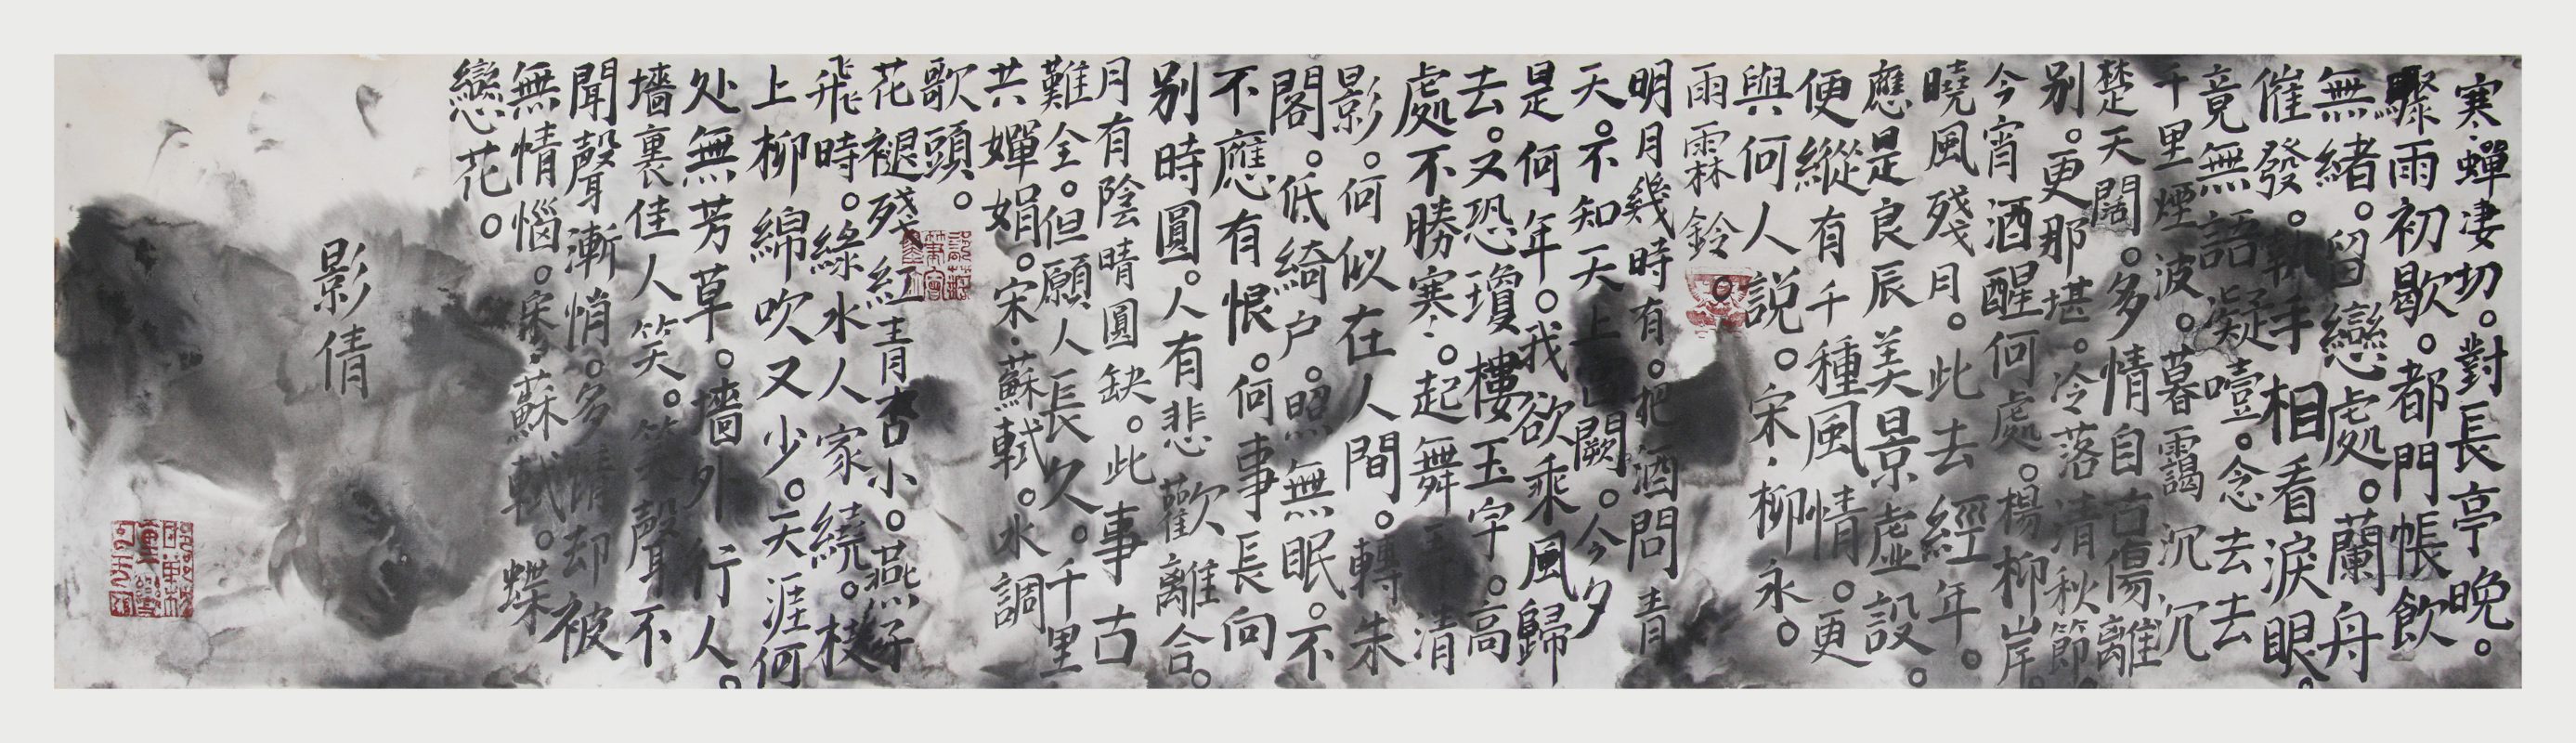 寒蟬凄切。對長亭晚。
驟雨初歇。都門帳飲
無緒。留戀處。蘭舟
催發。執手相看淚眼。
竟無語凝噎。念去去
千里煙波。暮靄沉沉
楚天闊。多情自古傷離
别。更那堪。冷落清秋節。
今宵酒醒何處。楊柳岸。
曉風殘月。此去經年。
應是良辰美景虛設。
便縱有千種風情。更
與何人説。宋·柳永。
雨霖鈴。
明月幾時有。把酒問青
天。不知天上宫闕。今夕
是何年。我欲乘風歸
去。又恐瓊樓玉宇。高
處不勝寒。起舞弄清
影。何似在人間。轉朱
閣。低綺户。照無眠。不
不應有恨。何事長向
别時圓。人有悲歡離合。
月有陰晴圓缺。此事古
難全。但願人長久。千里
共嬋娟。宋·蘇軾。水調
歌頭。
花褪殘紅青杏小。燕子
飛時。綠水人家繞。枝
上柳綿吹又少。天涯何
处無芳草。墻外行人。
墻裏佳人笑。笑聲不
聞聲漸悄。多情却被
無情惱。宋·蘇軾。蝶
戀花。
影倩